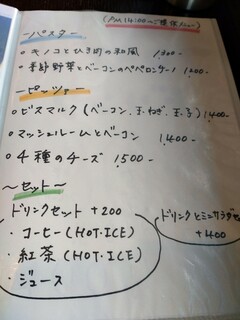 (PM14:00〜ご提供メニュー)
ーパスター
○キノコとひき肉の和風 1,300-
○季節野菜とベーコンのペペロンチーノ 1,200-
ーピッツァー
○ビスマルク(ベーコン、玉ねぎ、玉子) 1,400-
○マッシュルームとベーコン 1,400-
○4種のチーズ 1,500-
〜セット〜
ドリンクセット +200
・コーヒー(HOT・ICE)
・紅茶(HOT・ICE)
・ジュース
ドリンクとミニサラダセット
+400